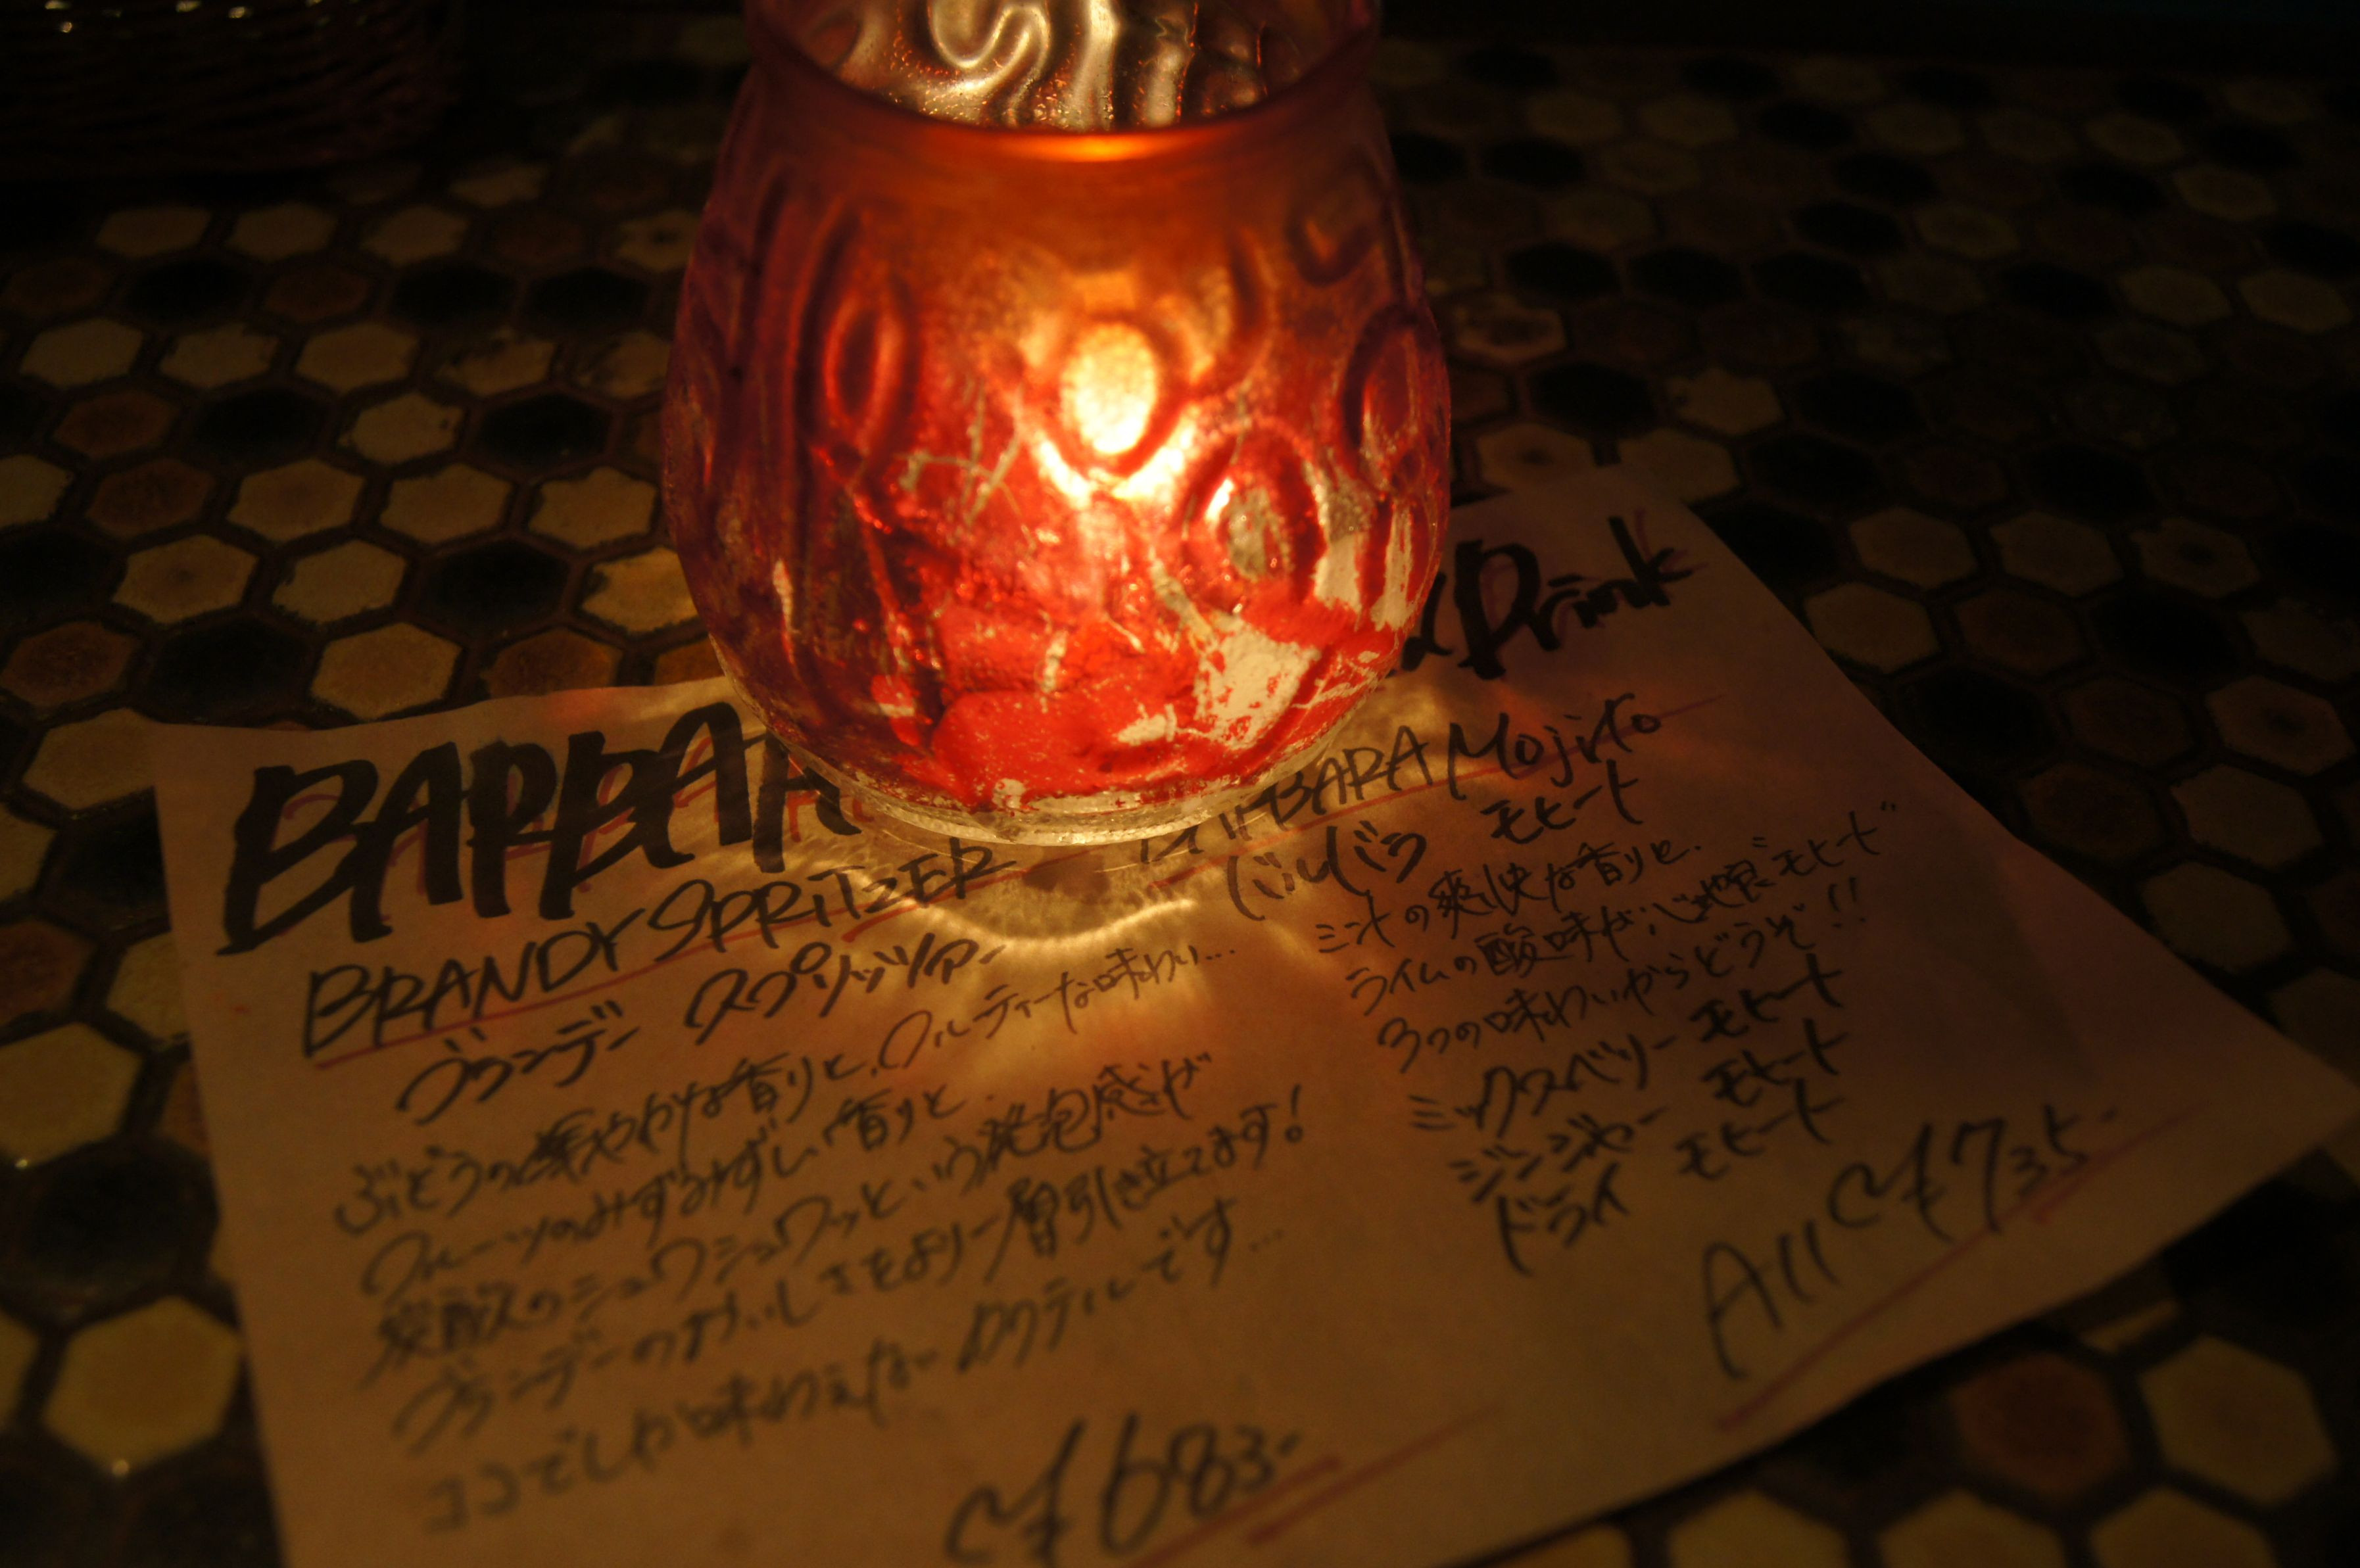 BARBAR
Drink
BRANDY SPRITZER
ブランデー スプリッツァー
ぶどうの華やかな香りと、フルーティーな味わい…
フルーツのみずみずしい香りと、
炭酸のシュワシュワッという発泡感が
ブランデーのおいしさをより一層引き立てます!
ココでしか味わえないカクテルです…
¥683-
BARBARA Mojito
バルバラ モヒート
ミントの爽快な香りと、
ライムの酸味が心地良い"モヒート"
3つの味わいからどうぞ!!
ミックスベリー モヒート
ジンジャー モヒート
ドライ モヒート
All ¥735-